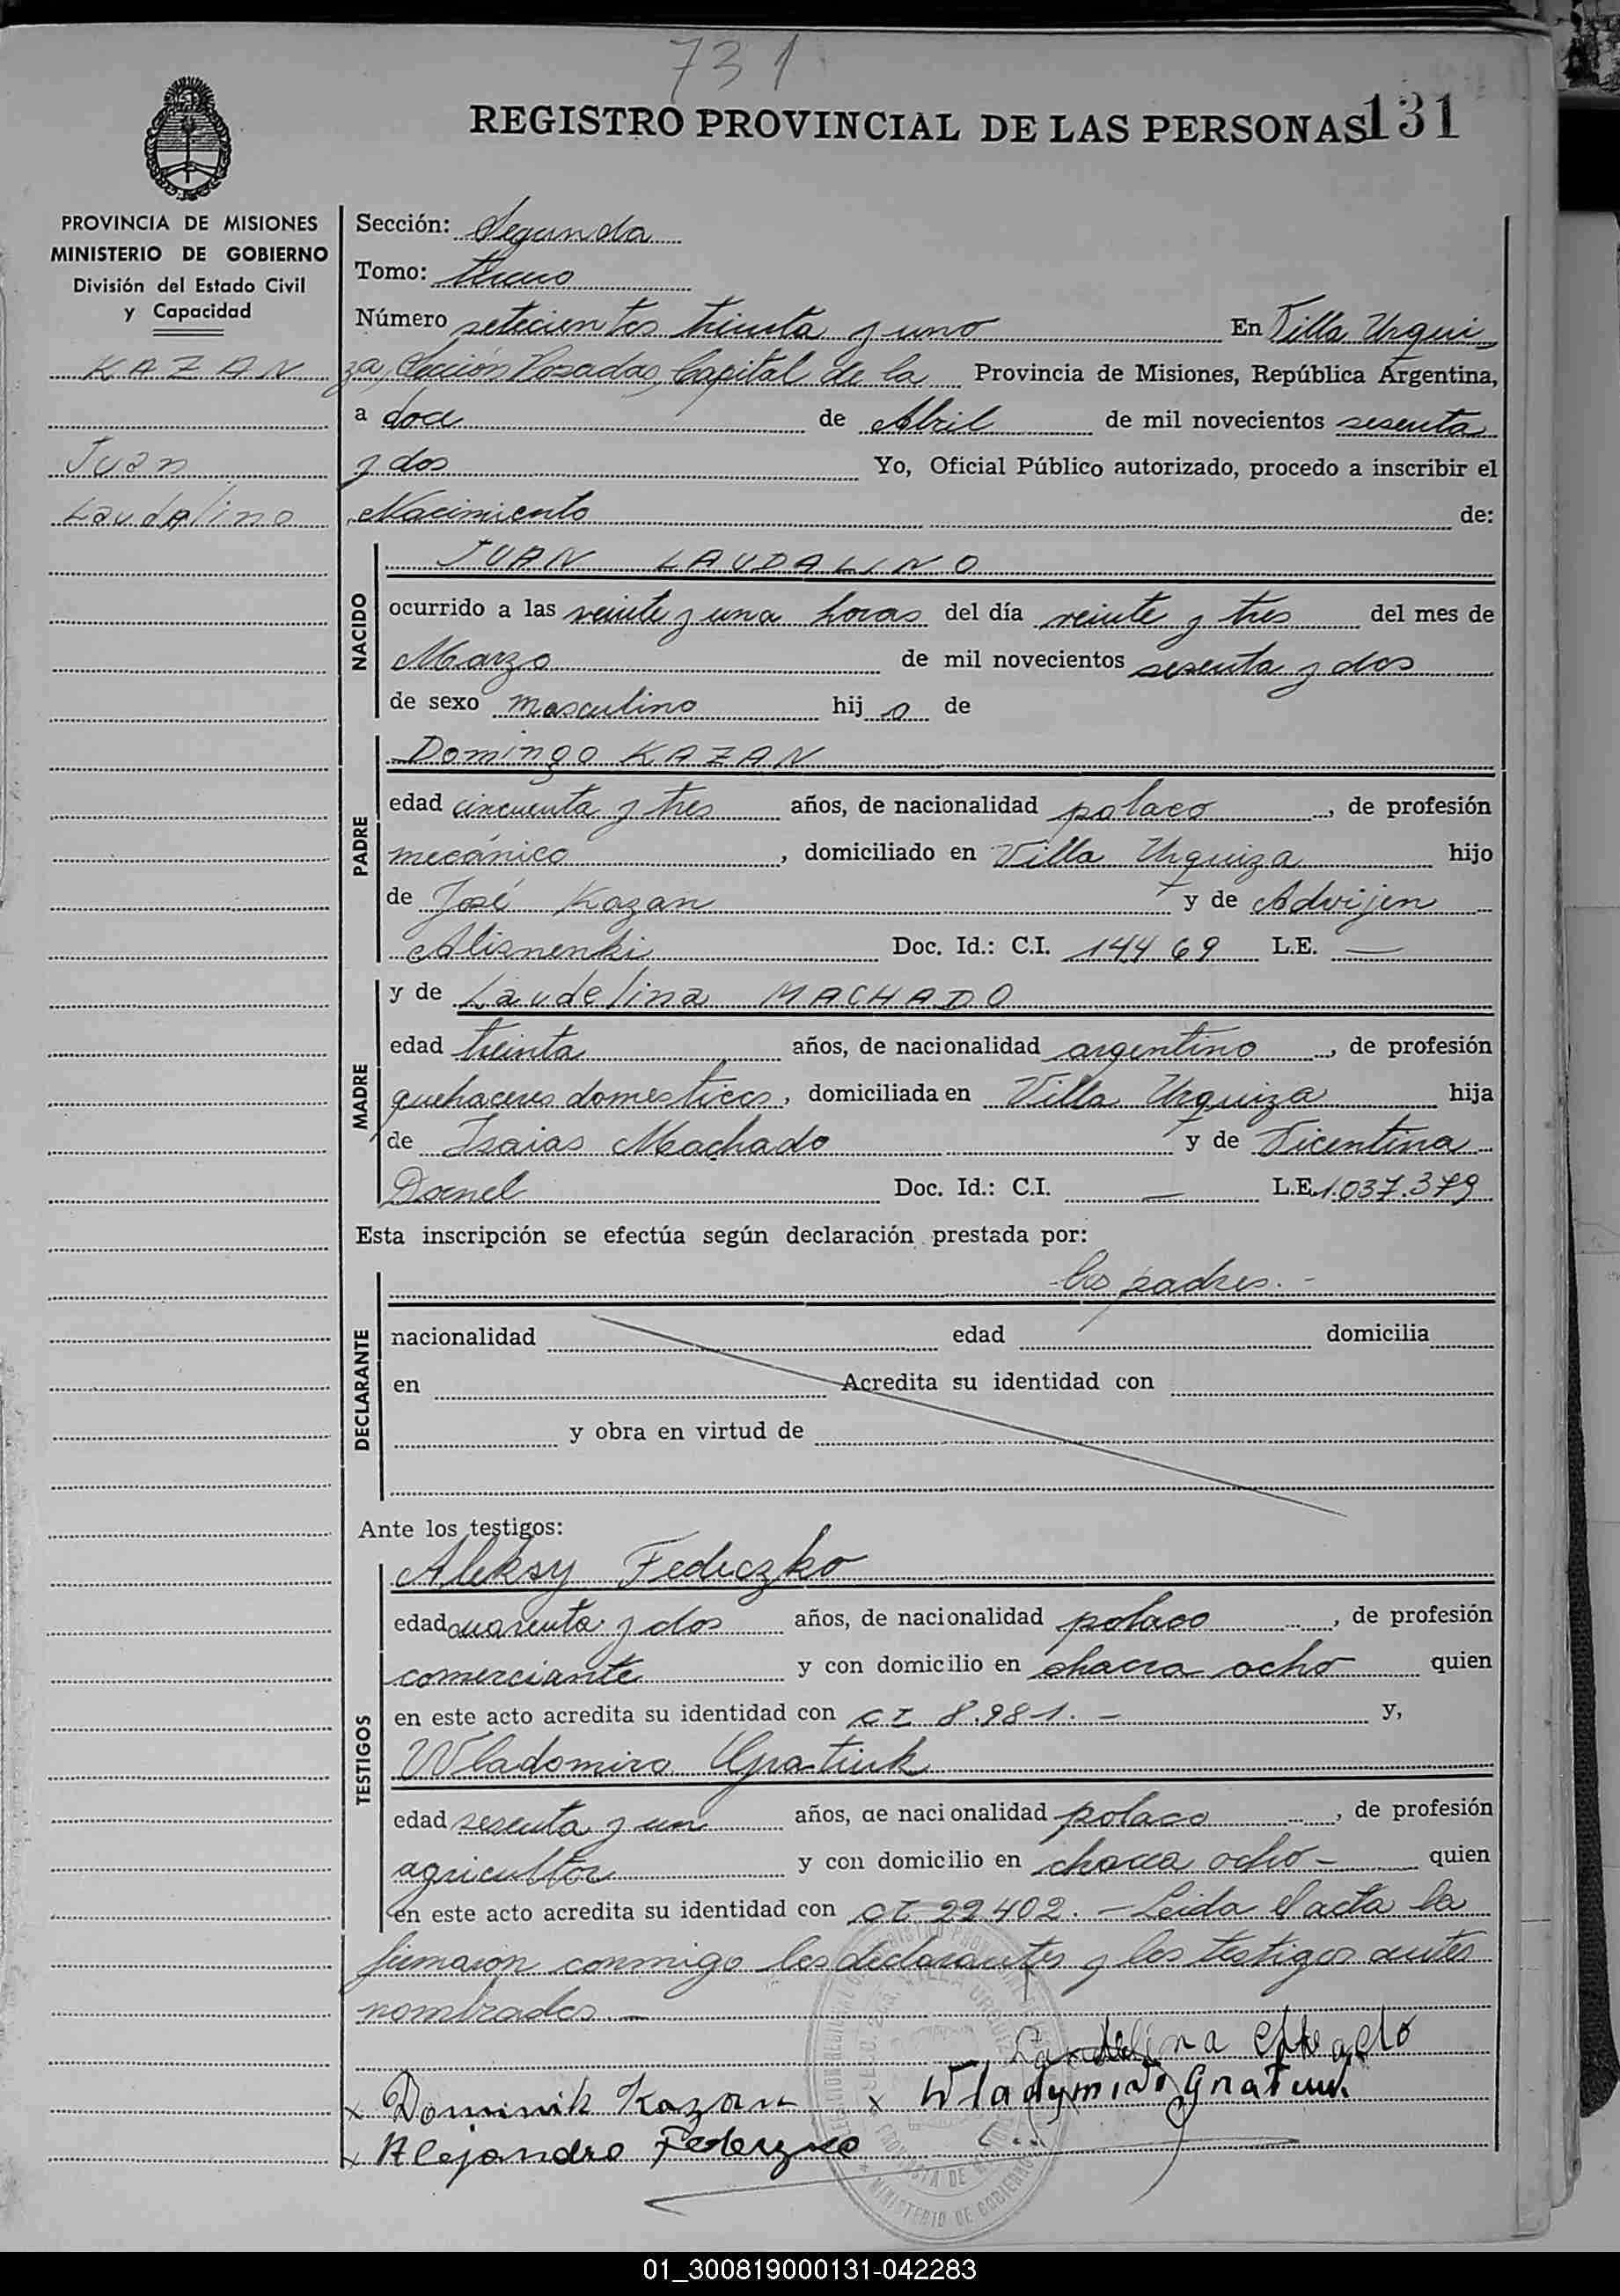 731
REGISTRO PROVINCIAL DE LAS PERSONAS 131
PROVINCIA DE MISIONES
MINISTERIO DE GOBIERNO
División del Estado Civil
y Capacidad
KAZAN
Juan
Laudalino
Sección: Segunda
Tomo:
Número setecientos treinta y uno En Villa Urqui-
za, Sección Posadas, Capital de la Provincia de Misiones, República Argentina,
a doce de Abril de mil novecientos sesenta
y dos Yo, Oficial Público autorizado, procedo a inscribir el
Nacimiento de:
NACIDO
JUAN LAUDALINO
ocurrido a las veinte y una horas del día veinte y tres del mes de
Marzo de mil novecientos sesenta y dos
de sexo masculino hijo de
PADRE
Domingo KAZAN
edad cincuenta y tres años, de nacionalidad polaco, de profesión
mecánico, domiciliado en Villa Urquiza hijo
de José Kazan y de Advijen
Alisnenki Doc. Id.: C.I. 14469 L.E. —
MADRE
y de Laudelina MACHADO
edad treinta años, de nacionalidad argentino, de profesión
quehaceres domesticos, domiciliada en Villa Urquiza hija
de Isaias Machado y de Vicentina
Dornel Doc. Id.: C.I. — L.E. 1.037.379
Esta inscripción se efectúa según declaración prestada por:
DECLARANTE
los padres.-
nacionalidad edad domicilia
en Acredita su identidad con
y obra en virtud de
Ante los testigos:
TESTIGOS
Aleksy Fediczko
edad cuarenta y dos años, de nacionalidad polaco, de profesión
comerciante y con domicilio en chacra ocho quien
en este acto acredita su identidad con CI 8.981.- y,
Wladomiro Gnatiuk
edad sesenta y un años, de nacionalidad polaco, de profesión
agricultor y con domicilio en chacra ocho- quien
en este acto acredita su identidad con CI 22402.- Leida el acta la
firmaron conmigo los declarantes y los testigos antes
nombrados.-
Laudelina
x Dominik Kazan x Wladymiro Gnatiuk
x Alejandro
VILLA URQUIZA
MINISTERIO DE GOBIERNO
01_300819000131-042283